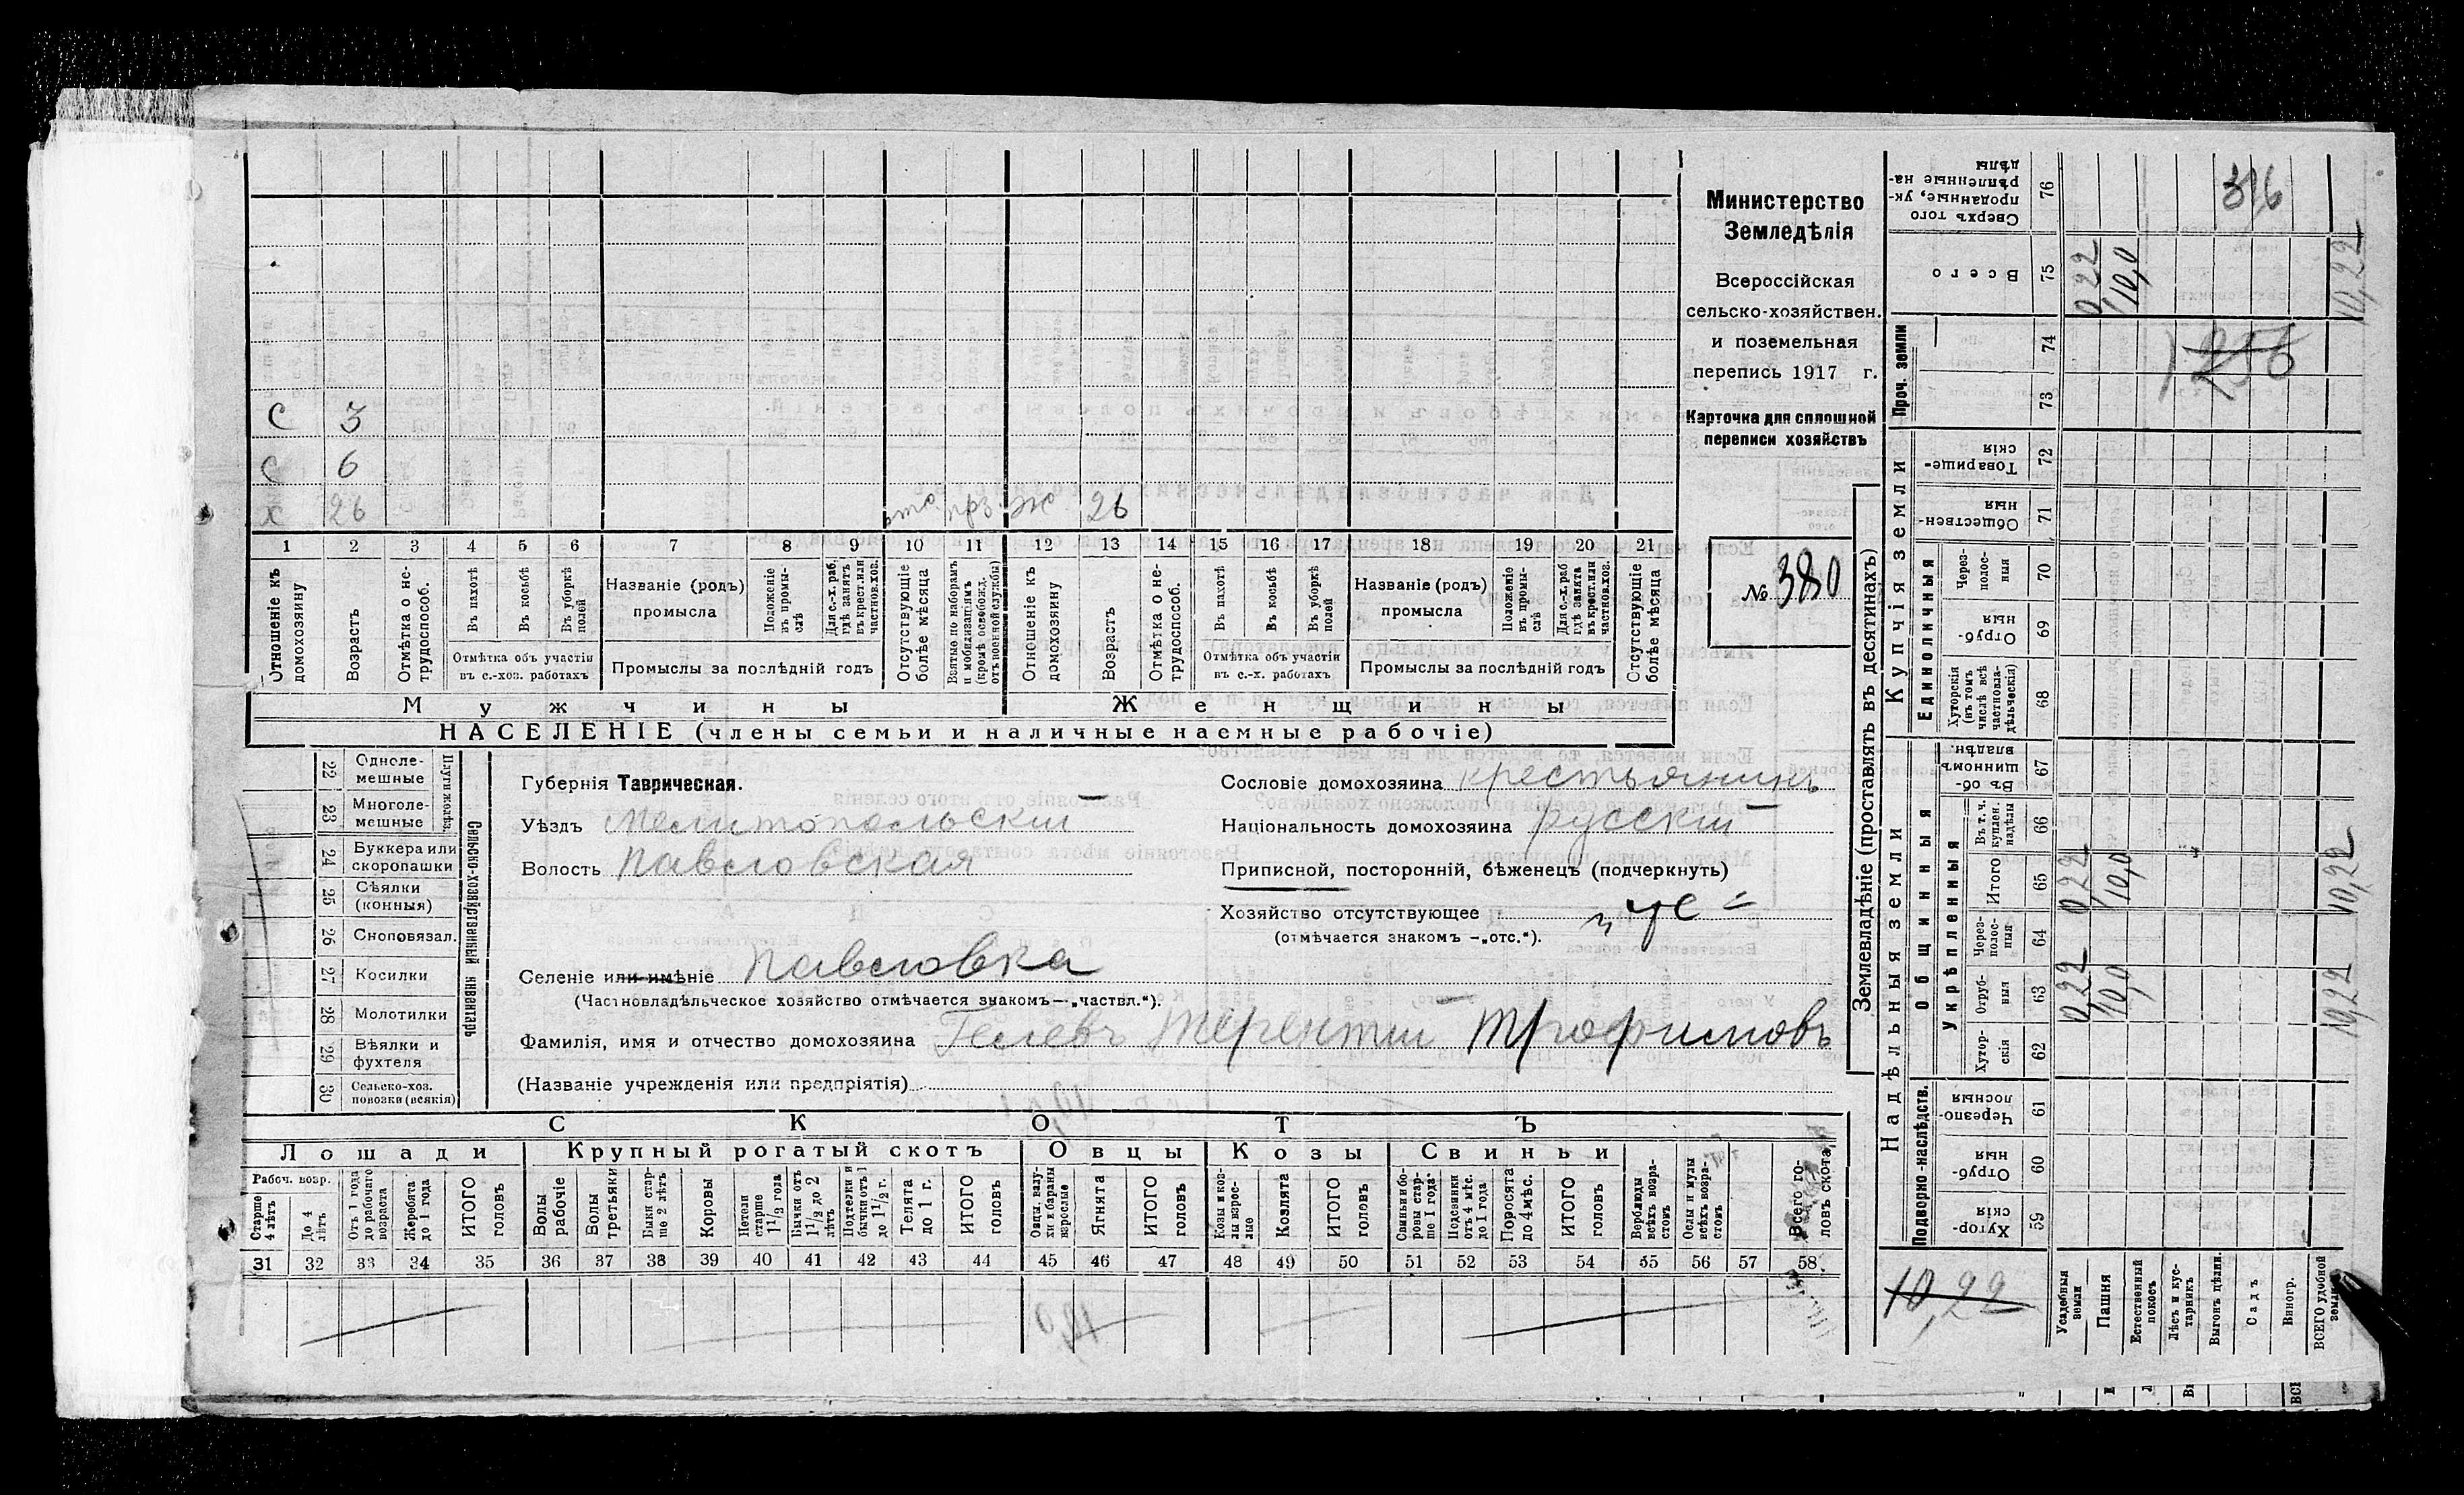 С 3
С 6
Х 26 прз. Ж 26
1 2 3 4 5 6 7 8 9 10 11 12 13 14 15 16 17 18 19 20 21
Отношеніе къ домохозяину
Возрастъ
Отмѣтка о не-трудоспособ.
Въ пахотѣ
Въ косьбѣ
Въ уборкѣ полей
Отмѣтка объ участіи
въ с.-хоз. работахъ
Названіе (родъ)
промысла
Положеніе въ промы-слѣ
Для с.-х. раб. гдѣ занятъ въ крест. или частнов. хоз.
Промыслы за послѣдній годъ
Отсутствующіе болѣе мѣсяца
Взятые по наборамъ и мобилизаціямъ (кромѣ освобожд. отъ военной службы)
Отношеніе къ домохозяину
Возрастъ
Отмѣтка о не-трудоспособ.
Въ пахотѣ
Въ косьбѣ
Въ уборкѣ полей
Отмѣтка объ участіи
въ с.-х. работахъ
Названіе (родъ)
промысла
Положеніе въ промы-слѣ
Для с.-х. раб. гдѣ занята въ крест. или частнов. хоз.
Промыслы за послѣдній годъ
Отсутствующіе болѣе мѣсяца
Мужчины Женщины
НАСЕЛЕНІЕ (члены семьи и наличные наемные рабочіе)
Министерство
Земледѣлія
Всероссійская
сельско-хозяйствен.
и поземельная
перепись 1917 г.
Карточка для сплошной
переписи хозяйствъ
№ 380
22 Одноле-мешные
23 Многоле-мешные
Плуги желѣз.
24 Буккера или скоропашки
25 Сѣялки (конныя)
26 Сноповязал.
27 Косилки
28 Молотилки
29 Вѣялки и фухтеля
30 Сельско-хоз. повозки (всякія)
Сельско-хозяйственный инвентарь
Губернія Таврическая.
Уѣздъ Мелитопольскій
Волость Павловская
Селеніе или имѣніе Павловка
(Частновладѣльческое хозяйство отмѣчается знакомъ—„частвл.“).
Фамилія, имя и отчество домохозяина Гелевъ Терентій Трофимовъ
(Названіе учрежденія или предпріятія)
Сословіе домохозяина крестьянинъ
Національность домохозяина русскій
Приписной, посторонній, бѣженецъ (подчеркнуть)
Хозяйство отсутствующее
(отмѣчается знакомъ —„отс.“).
СКОТЪ
Лошади Крупный рогатый скотъ Овцы Козы Свиньи
Рабоч. возр.
Старше 4 лѣтъ
До 4 лѣтъ
Отъ 1 года до рабочаго возраста
Жеребята до 1 года
ИТОГО головъ
Волы рабочіе
Волы третьяки
Быки стар-ше 2 лѣтъ
Коровы
Нетели старше 1 1/2 года
Бычки отъ 1 1/2 до 2 лѣтъ
Подтелки и бычки отъ 1 до 1 1/2 г.
Телята до 1 г.
ИТОГО головъ
Овцы, валу-хи и бараны взрослые
Ягнята
ИТОГО головъ
Козы и коз-лы взрос-лые
Козлята
ИТОГО головъ
Свиньи и бо-ровы стар-ше 1 года
Подсвинки отъ 4 мѣс. до 1 года
Поросята до 4 мѣс.
ИТОГО головъ
Верблюды всѣхъ возра-стовъ
Ослы и мулы всѣхъ возра-стовъ
Всего го-ловъ скота
31 32 33 34 35 36 37 38 39 40 41 42 43 44 45 46 47 48 49 50 51 52 53 54 55 56 57 58
Землевладѣніе (проставлять въ десятинахъ)
Надѣльныя земли
Купчія земли
Проч. земли
Подворно-наслѣдств.
Общинныя
Укрѣпленныя
Единоличныя
59 Хутор-скія
60 Отруб-ныя
61 Черезпо-лосныя
62 Хутор-скія
63 Отруб-ныя 0,22 10,0 10,22
64 Через-полос-ныя
65 Итого 0,22 10,0 10,22
66 Въ т. ч. куплен. надѣлы
67 Въ об-щинномъ владѣн.
68 Хуторскія (въ томъ числѣ всѣ частновла-дѣльческія)
69 Отруб-ныя
70 Через-полос-ныя
71 Обществен-ныя
72 Товарище-скія
73
74
75 Всего 0,22 10,0 10,22
76 Сверхъ того проданные, ук-рѣпленные на-дѣлы
316
256
10,22
Усадебныя земли
Пашня
Естественный покосъ
Лѣсъ и кус-тарникъ
Выгонъ цѣлин.
Садъ
Виногр.
ВСЕГО удобной земли